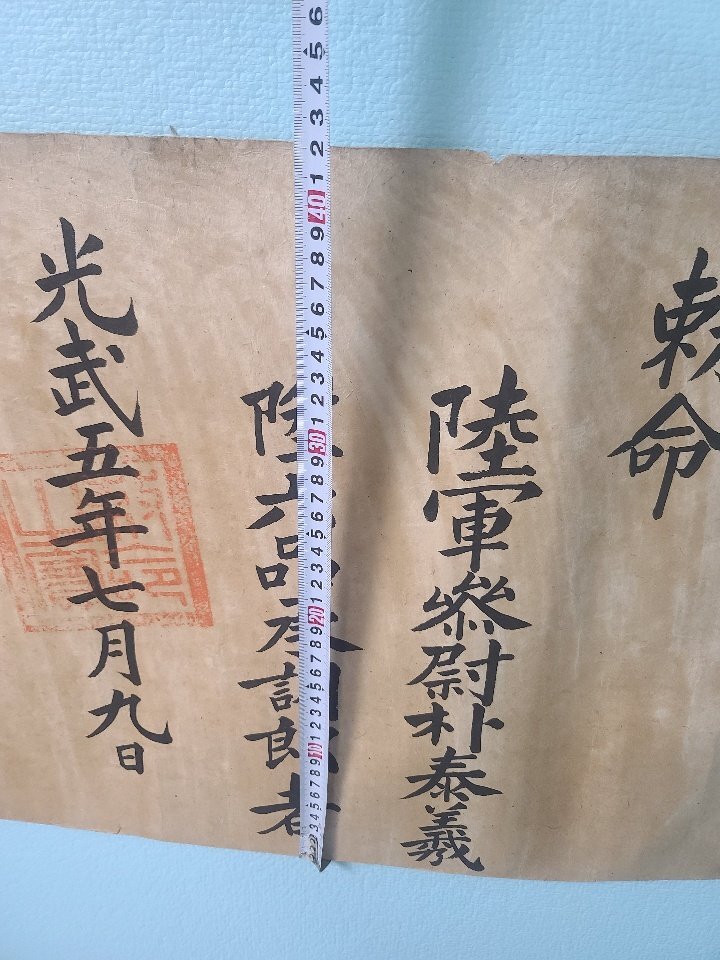 勅命
陸軍參尉朴泰羲
陞六品承訓郎者
光武五年七月九日
6 5 4 3 2 1 40 9 8 7 6 5 4 3 2 1 30 9 8 7 6 5 4 3 2 1 20 9 8 7 6 5 4 3 2 1 10 9 8 7 6 5 4 3